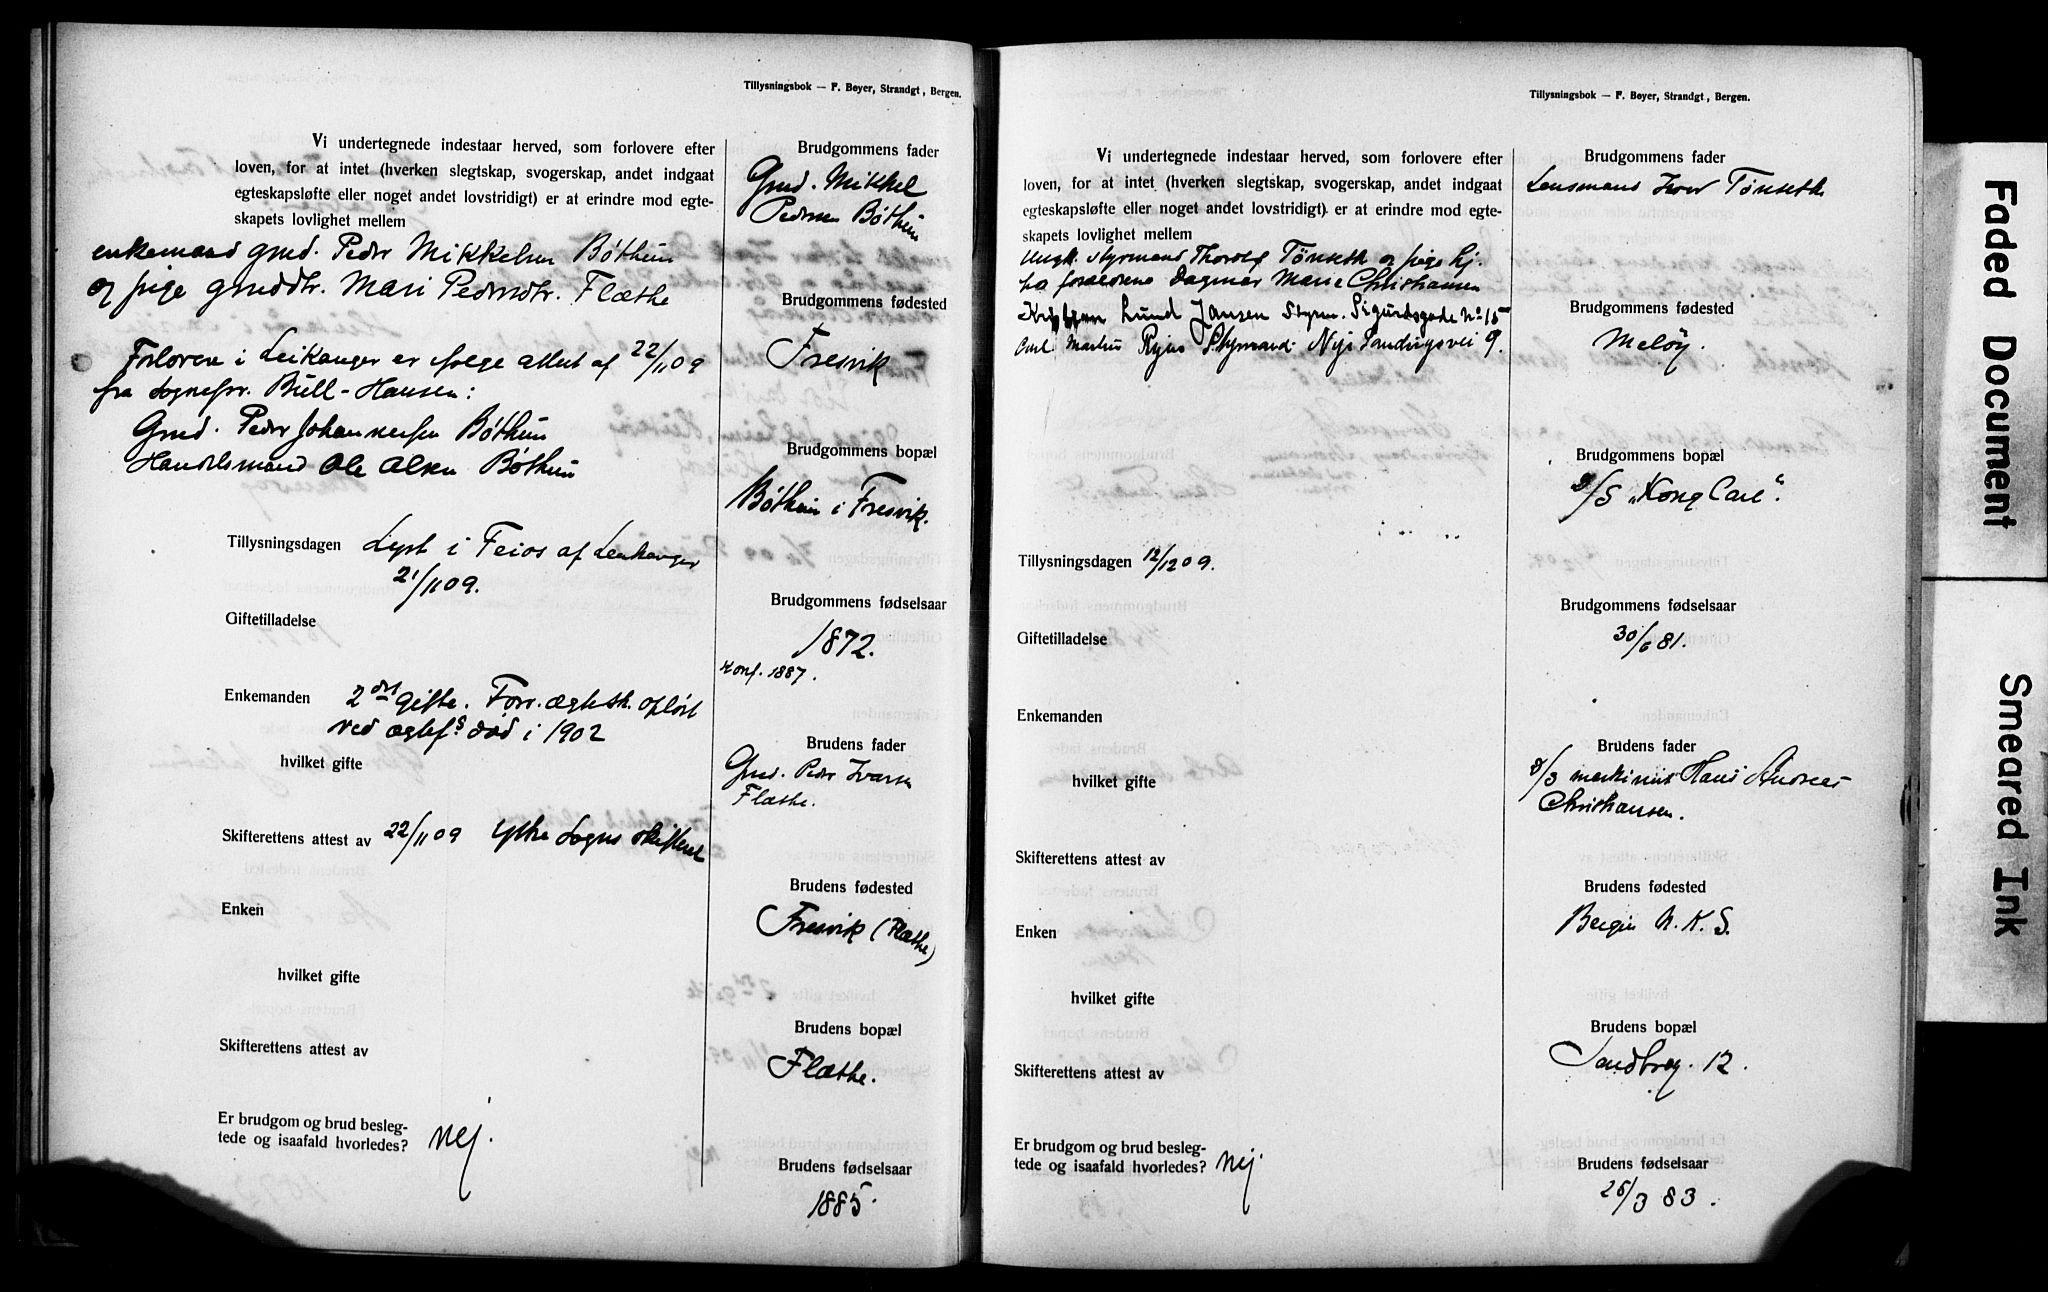 Tillysningsbok — F. Beyer, Strandgt, Bergen.
Vi undertegnede indestaar herved, som forlovere efter
loven, for at intet (hverken slegtskap, svogerskap, andet indgaat
egteskapsløfte eller noget andet lovstridigt) er at erindre mod egte-
skapets lovlighet mellem
enkemand gmd. Peder Mikkelsen Bøthun
og pige gmddtr. Mari Pedersdtr. Flæthe
Forlovere i Leikanger er ifølge attest af 22/11 09
fra sognepr. Bull-Hansen:
Gmd. Peder Johannessen Bøthun
Handelsmand Ole Olsen Bøthun
Tillysningsdagen Lyst i Feios af Leikanger
21/11 09.
Giftetilladelse
Enkemanden 2det gifte. Forr. ægtesk. opløst
ved ægtef.s død i 1902
hvilket gifte
Skifterettens attest av 22/11 09 Ytre Sogns skifteret
Enken
hvilket gifte
Skifterettens attest av
Er brudgom og brud besleg-
tede og isaafald hvorledes? Nej.
Brudgommens fader
Gmd. Mikkel
Pedersen Bøthun
Brudgommens fødested
Fresvik
Brudgommens bopæl
Bøthun i Fresvik.
Brudgommens fødselsaar
1872.
Konf. 1887.
Brudens fader
Gmd. Peder Ivarsen
Flæthe.
Brudens fødested
Fresvik (Flæthe)
Brudens bopæl
Flæthe.
Brudens fødselsaar
1885.
Tillysningsbok — F. Beyer, Strandgt, Bergen.
Vi undertegnede indestaar herved, som forlovere efter
loven, for at intet (hverken slegtskap, svogerskap, andet indgaat
egteskapsløfte eller noget andet lovstridigt) er at erindre mod egte-
skapets lovlighet mellem
Ungk. Styrmand Thorolf Tönseth og pige hj.
hos forældrene Dagmar Marie Christiansen
Lund Jansen Styrm. Sigurdsgade No 15
Carl Martin Styrmand. Nye Sandviksvei 9.
Tillysningsdagen 12/12 09.
Giftetilladelse
Enkemanden
hvilket gifte
Skifterettens attest av
Enken
hvilket gifte
Skifterettens attest av
Er brudgom og brud besleg-
tede og isaafald hvorledes? Nej.
Brudgommens fader
Lensmand Iver Tönseth
Brudgommens fødested
Meløy.
Brudgommens bopæl
D/S "Kong Carl".
Brudgommens fødselsaar
30/6 81.
Brudens fader
D/S maskinist Hans Andreas
Christiansen.
Brudens fødested
Bergen N. K. S.
Brudens bopæl
Sandbrog. 12.
Brudens fødselsaar
25/3 83.
Faded Document
Smeared Ink